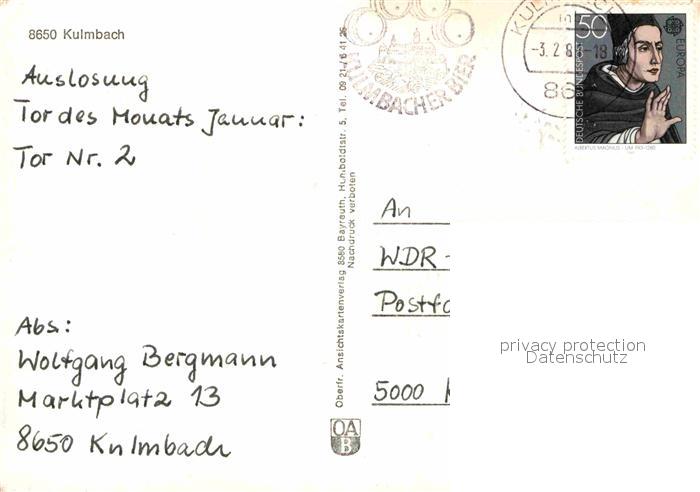 8650 Kulmbach
Auslosung
Tor des Monats Januar:
Tor Nr. 2
Abs:
Wolfgang Bergmann
Marktplatz 13
8650 Kulmbach
Oberfr. Ansichtskartenverlag 8580 Bayreuth, Humboldtstr. 5, Tel. 09 21 / 6 41 26
Nachdruck verboten
OA
B
KULMBACHER BIER
-3.2.8 -18
86
50
DEUTSCHE BUNDESPOST
EUROPA
ALBERTUS MAGNUS
An
WDR -
Postfa
5000
privacy protection
Datenschutz